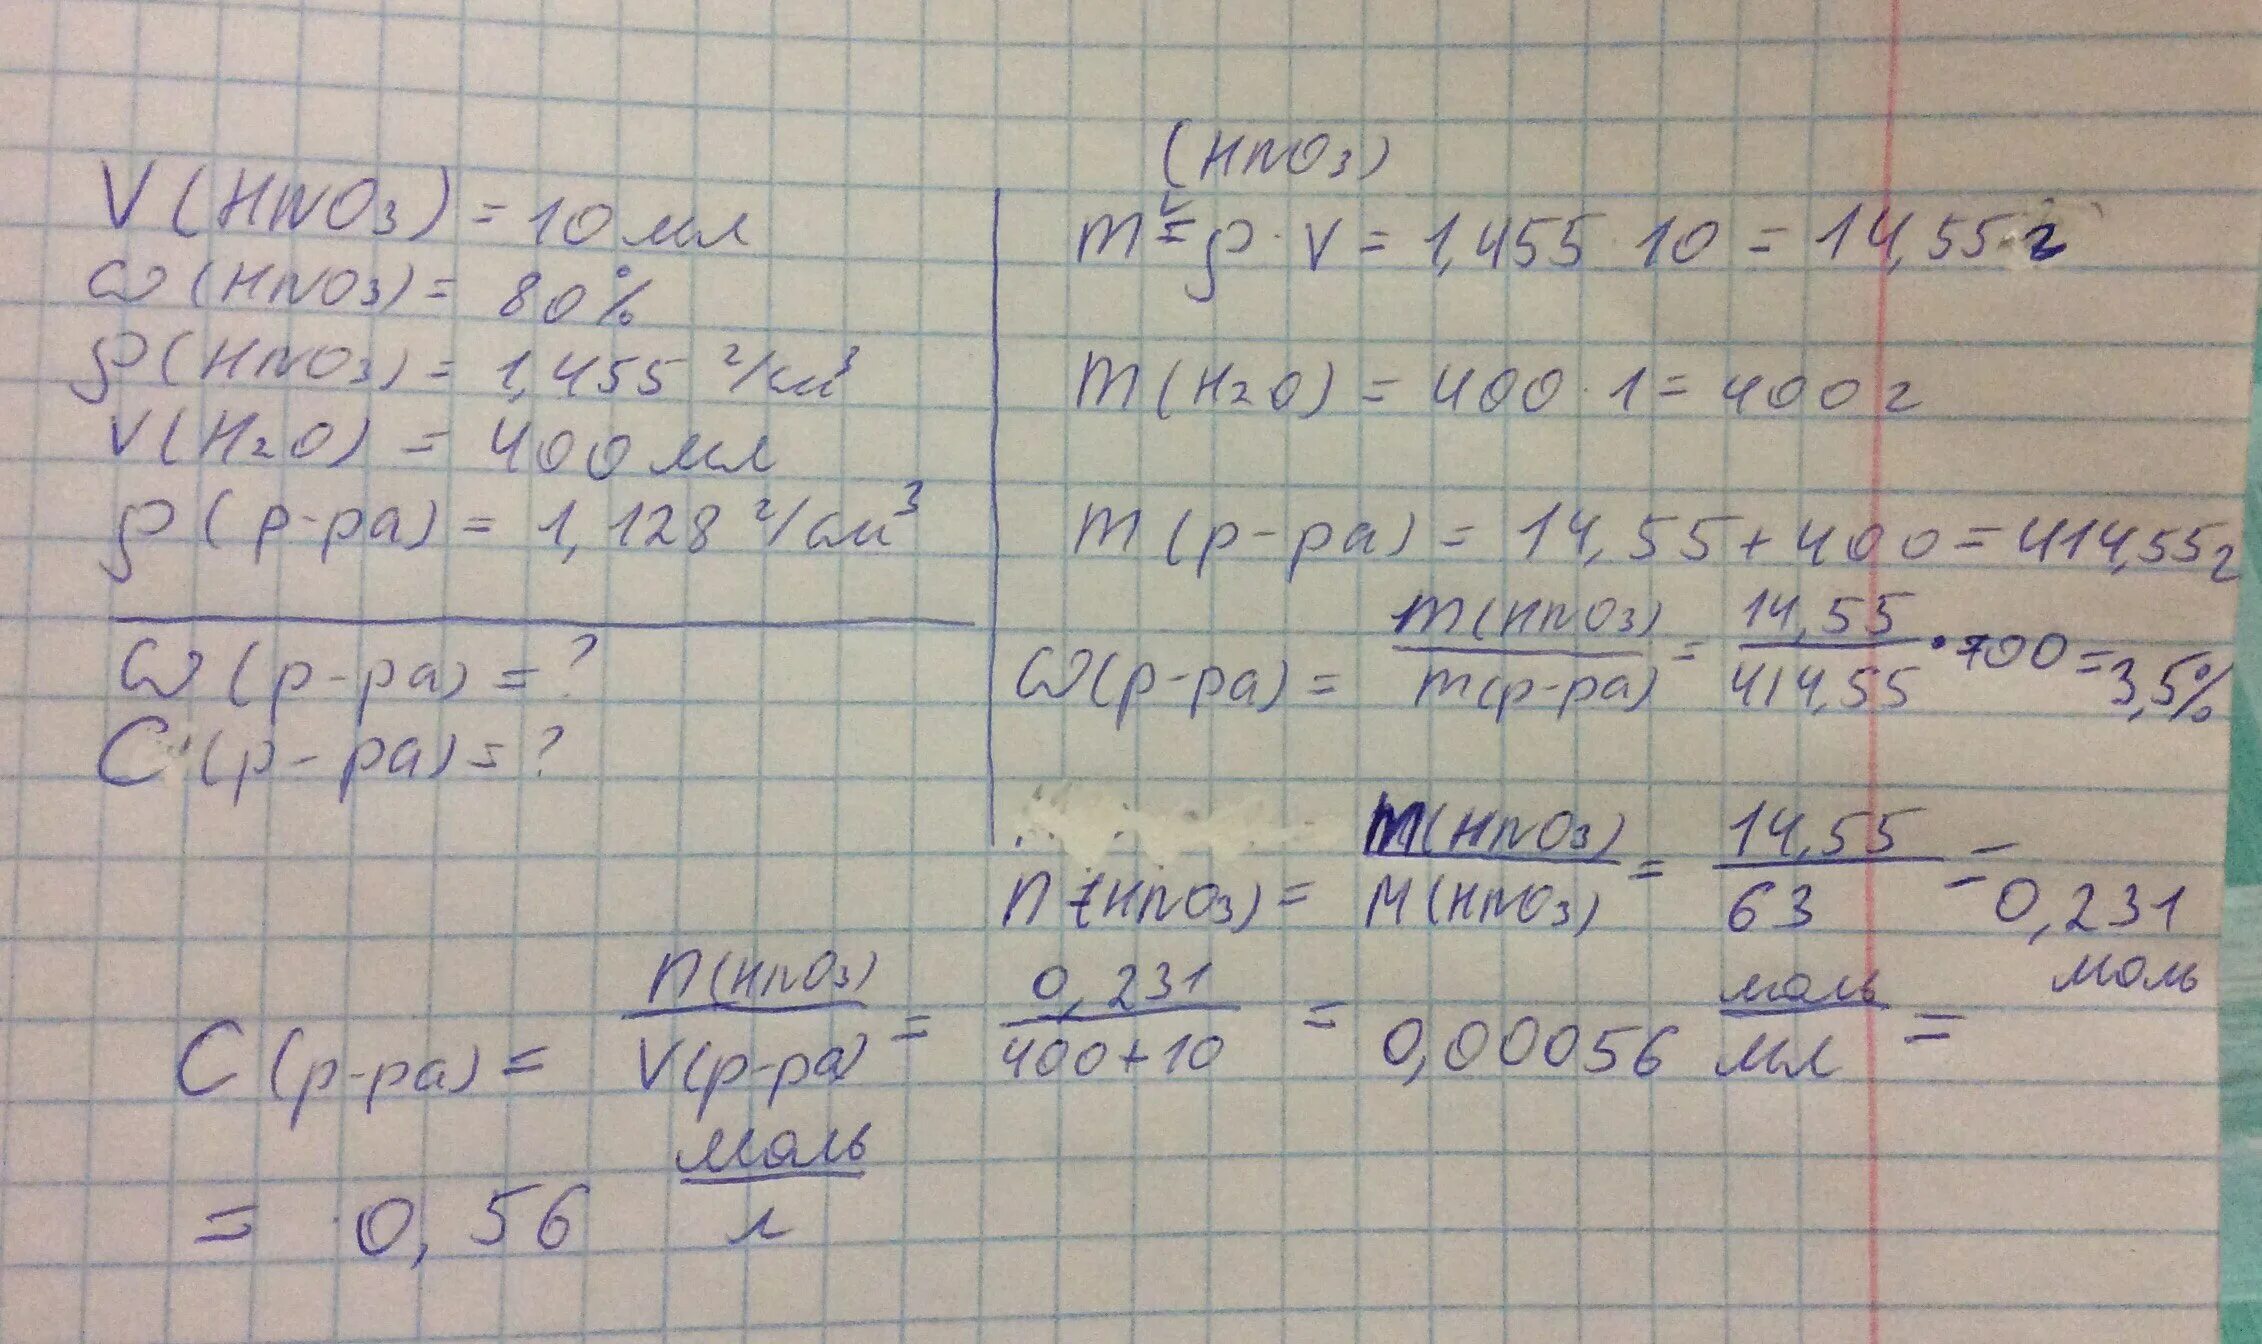 V(HNO3) = 10 мл
ω(HNO3) = 80%
ρ(HNO3) = 1,455 г/см³
V(H2O) = 400 мл
ρ(р-ра) = 1,128 г/см³
ω(р-ра) = ?
C(р-ра) = ?
(HNO3)
m = ρ · V = 1,455 · 10 = 14,55 г
m(H2O) = 400 · 1 = 400 г
m(р-ра) = 14,55 + 400 = 414,55 г
ω(р-ра) = m(HNO3) / m(р-ра) = 14,55 / 414,55 · 100 = 3,5%
n(HNO3) = m(HNO3) / M(HNO3) = 14,55 / 63 = 0,231 моль
C(р-ра) = n(HNO3) / V(р-ра) = 0,231 / 400+10 = 0,00056 моль / мл =
= 0,56 моль / л